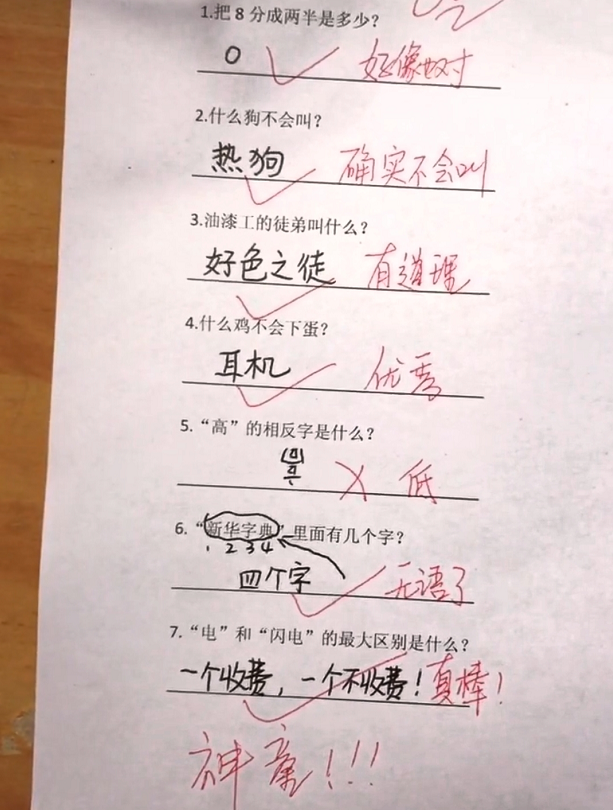 1.把 8 分成两半是多少？
0 好像対
2.什么狗不会叫？
热狗 确实不会叫
3.油漆工的徒弟叫什么？
好色之徒 有道理
4.什么鸡不会下蛋？
耳机 优秀
5.“高”的相反字是什么？
低
6.“新华字典”里面有几个字？
1 2 3 4
四个字 无语了
7.“电”和“闪电”的最大区别是什么？
一个收费，一个不收费！真棒！
神童！！！